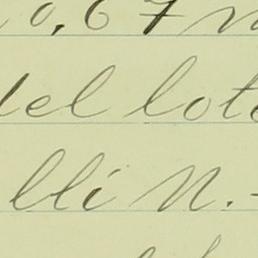 0,67 m
del lote
lli N.-